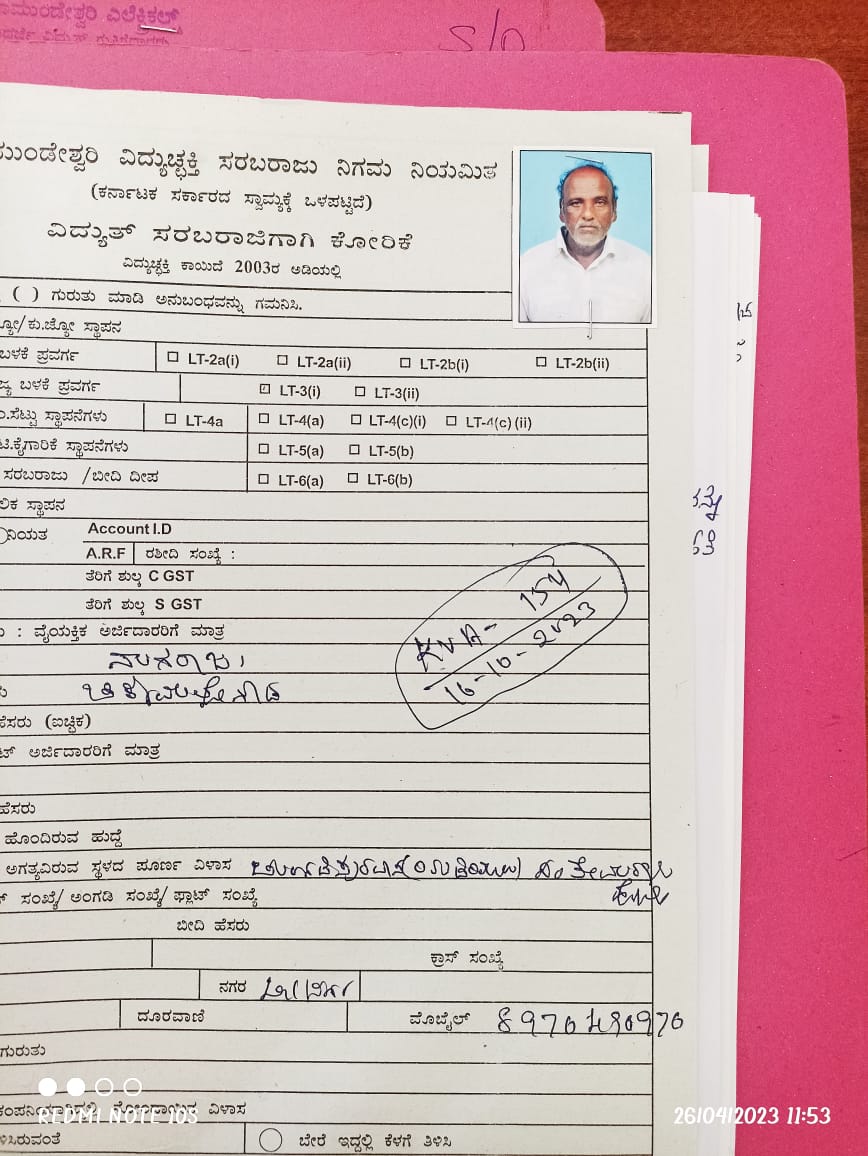 ಎಲೆಕ್ಟ್ರಿಕಲ್ಸ್
S/O
ಮುಂಡೇಶ್ವರಿ ವಿದ್ಯುಚ್ಛಕ್ತಿ ಸರಬರಾಜು ನಿಗಮ ನಿಯಮಿತ
(ಕರ್ನಾಟಕ ಸರ್ಕಾರದ ಸ್ವಾಮ್ಯಕ್ಕೆ ಒಳಪಟ್ಟಿದೆ)
ವಿದ್ಯುತ್ ಸರಬರಾಜಿಗಾಗಿ ಕೋರಿಕೆ
ವಿದ್ಯುಚ್ಛಕ್ತಿ ಕಾಯಿದೆ 2003ರ ಅಡಿಯಲ್ಲಿ
( ) ಗುರುತು ಮಾಡಿ ಅನುಬಂಧವನ್ನು ಗಮನಿಸಿ.
ಜ್ಯೋ/ಕು.ಜ್ಯೋ ಸ್ಥಾಪನ
ಬಳಕೆ ಪ್ರವರ್ಗ LT-2a(i) LT-2a(ii) LT-2b(i) LT-2b(ii)
ಜ್ಯ ಬಳಕೆ ಪ್ರವರ್ಗ LT-3(i) LT-3(ii)
ಸೆಟ್ಟು ಸ್ಥಾಪನೆಗಳು LT-4a LT-4(a) LT-4(c)(i) LT-4(c)(ii)
ಟಿ.ಕೈಗಾರಿಕೆ ಸ್ಥಾಪನೆಗಳು LT-5(a) LT-5(b)
ಸರಬರಾಜು /ಬೀದಿ ದೀಪ LT-6(a) LT-6(b)
ಲಿಕ ಸ್ಥಾಪನ
ನಿಯತ Account I.D
A.R.F ರಶೀದಿ ಸಂಖ್ಯೆ :
ತೆರಿಗೆ ಶುಲ್ಕ C GST
ತೆರಿಗೆ ಶುಲ್ಕ S GST
KVA- 154
16-10-2023
: ವೈಯಕ್ತಿಕ ಅರ್ಜಿದಾರರಿಗೆ ಮಾತ್ರ
ನಾಗರಾಜು
ಹೆಸರು (ಐಚ್ಛಿಕ)
ಟ್ ಅರ್ಜಿದಾರರಿಗೆ ಮಾತ್ರ
ಹೆಸರು
ಹೊಂದಿರುವ ಹುದ್ದೆ
ಅಗತ್ಯವಿರುವ ಸ್ಥಳದ ಪೂರ್ಣ ವಿಳಾಸ
ಸಂಖ್ಯೆ/ ಅಂಗಡಿ ಸಂಖ್ಯೆ/ ಫ್ಲಾಟ್ ಸಂಖ್ಯೆ
ಬೀದಿ ಹೆಸರು
ಕ್ರಾಸ್ ಸಂಖ್ಯೆ
ನಗರ
ದೂರವಾಣಿ ಮೊಬೈಲ್ 8970480970
ಗುರುತು
ವಿಳಾಸ
ಳಿಸಿರುವಂತೆ ಬೇರೆ ಇದ್ದಲ್ಲಿ ಕೆಳಗೆ ತಿಳಿಸಿ
REDMI NOTE 10S
26/04/2023 11:53